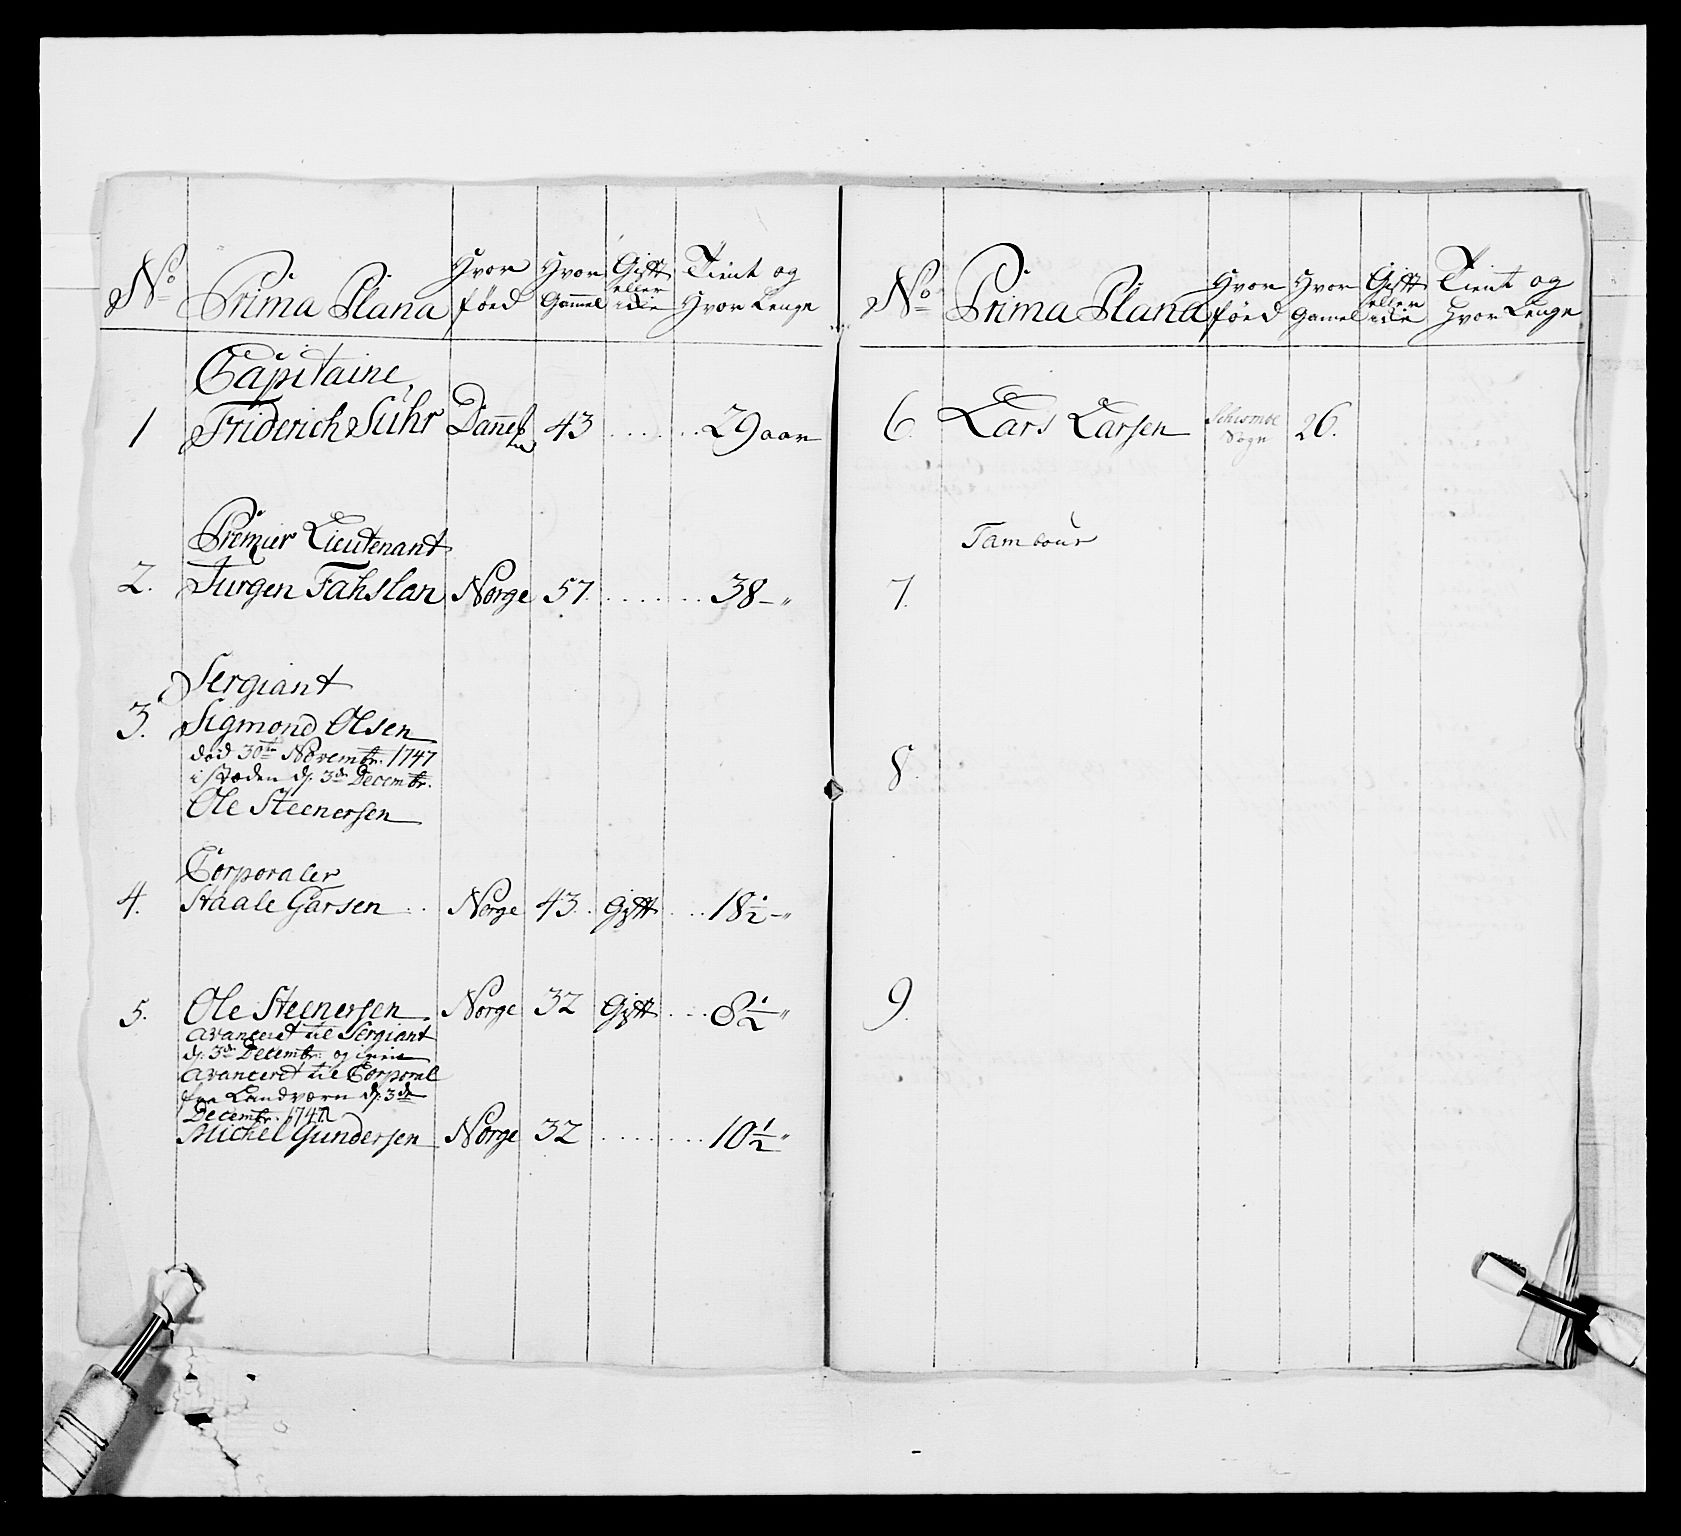 No Prima Plana Hvor föed Hvor Gammel Gift eller icke Tient og Hvor Lenge
Capitaine
1 Friderich Suhr 43 29 aar
Premier Lieutenant
2. Jurgen Fahslan Norge 57 38 - "
Sergiant
3. Sigmond Olsen
död 30te Novembr. 1747
i stæden d. 3de Decembr.
Ole Steenersen
Corporaler
4. Staale Garsen Norge 43 Gift 18½ - "
5. Ole Steenersen Norge 32 Gift 8½ "
Avanceret til Sergiant
d. 3de Decembr. og igien
Avanceret til Corporal
fra Landværn d. 3de
Decembr. 1747
Michel Gundersen Norge 32 10½ "
No Prima Plana Hvor föed Hvor Gamel Gift eller icke Tient og Hvor Lenge
6. Lars Larsen Sogn 26.
Tambour
7.
8.
9.